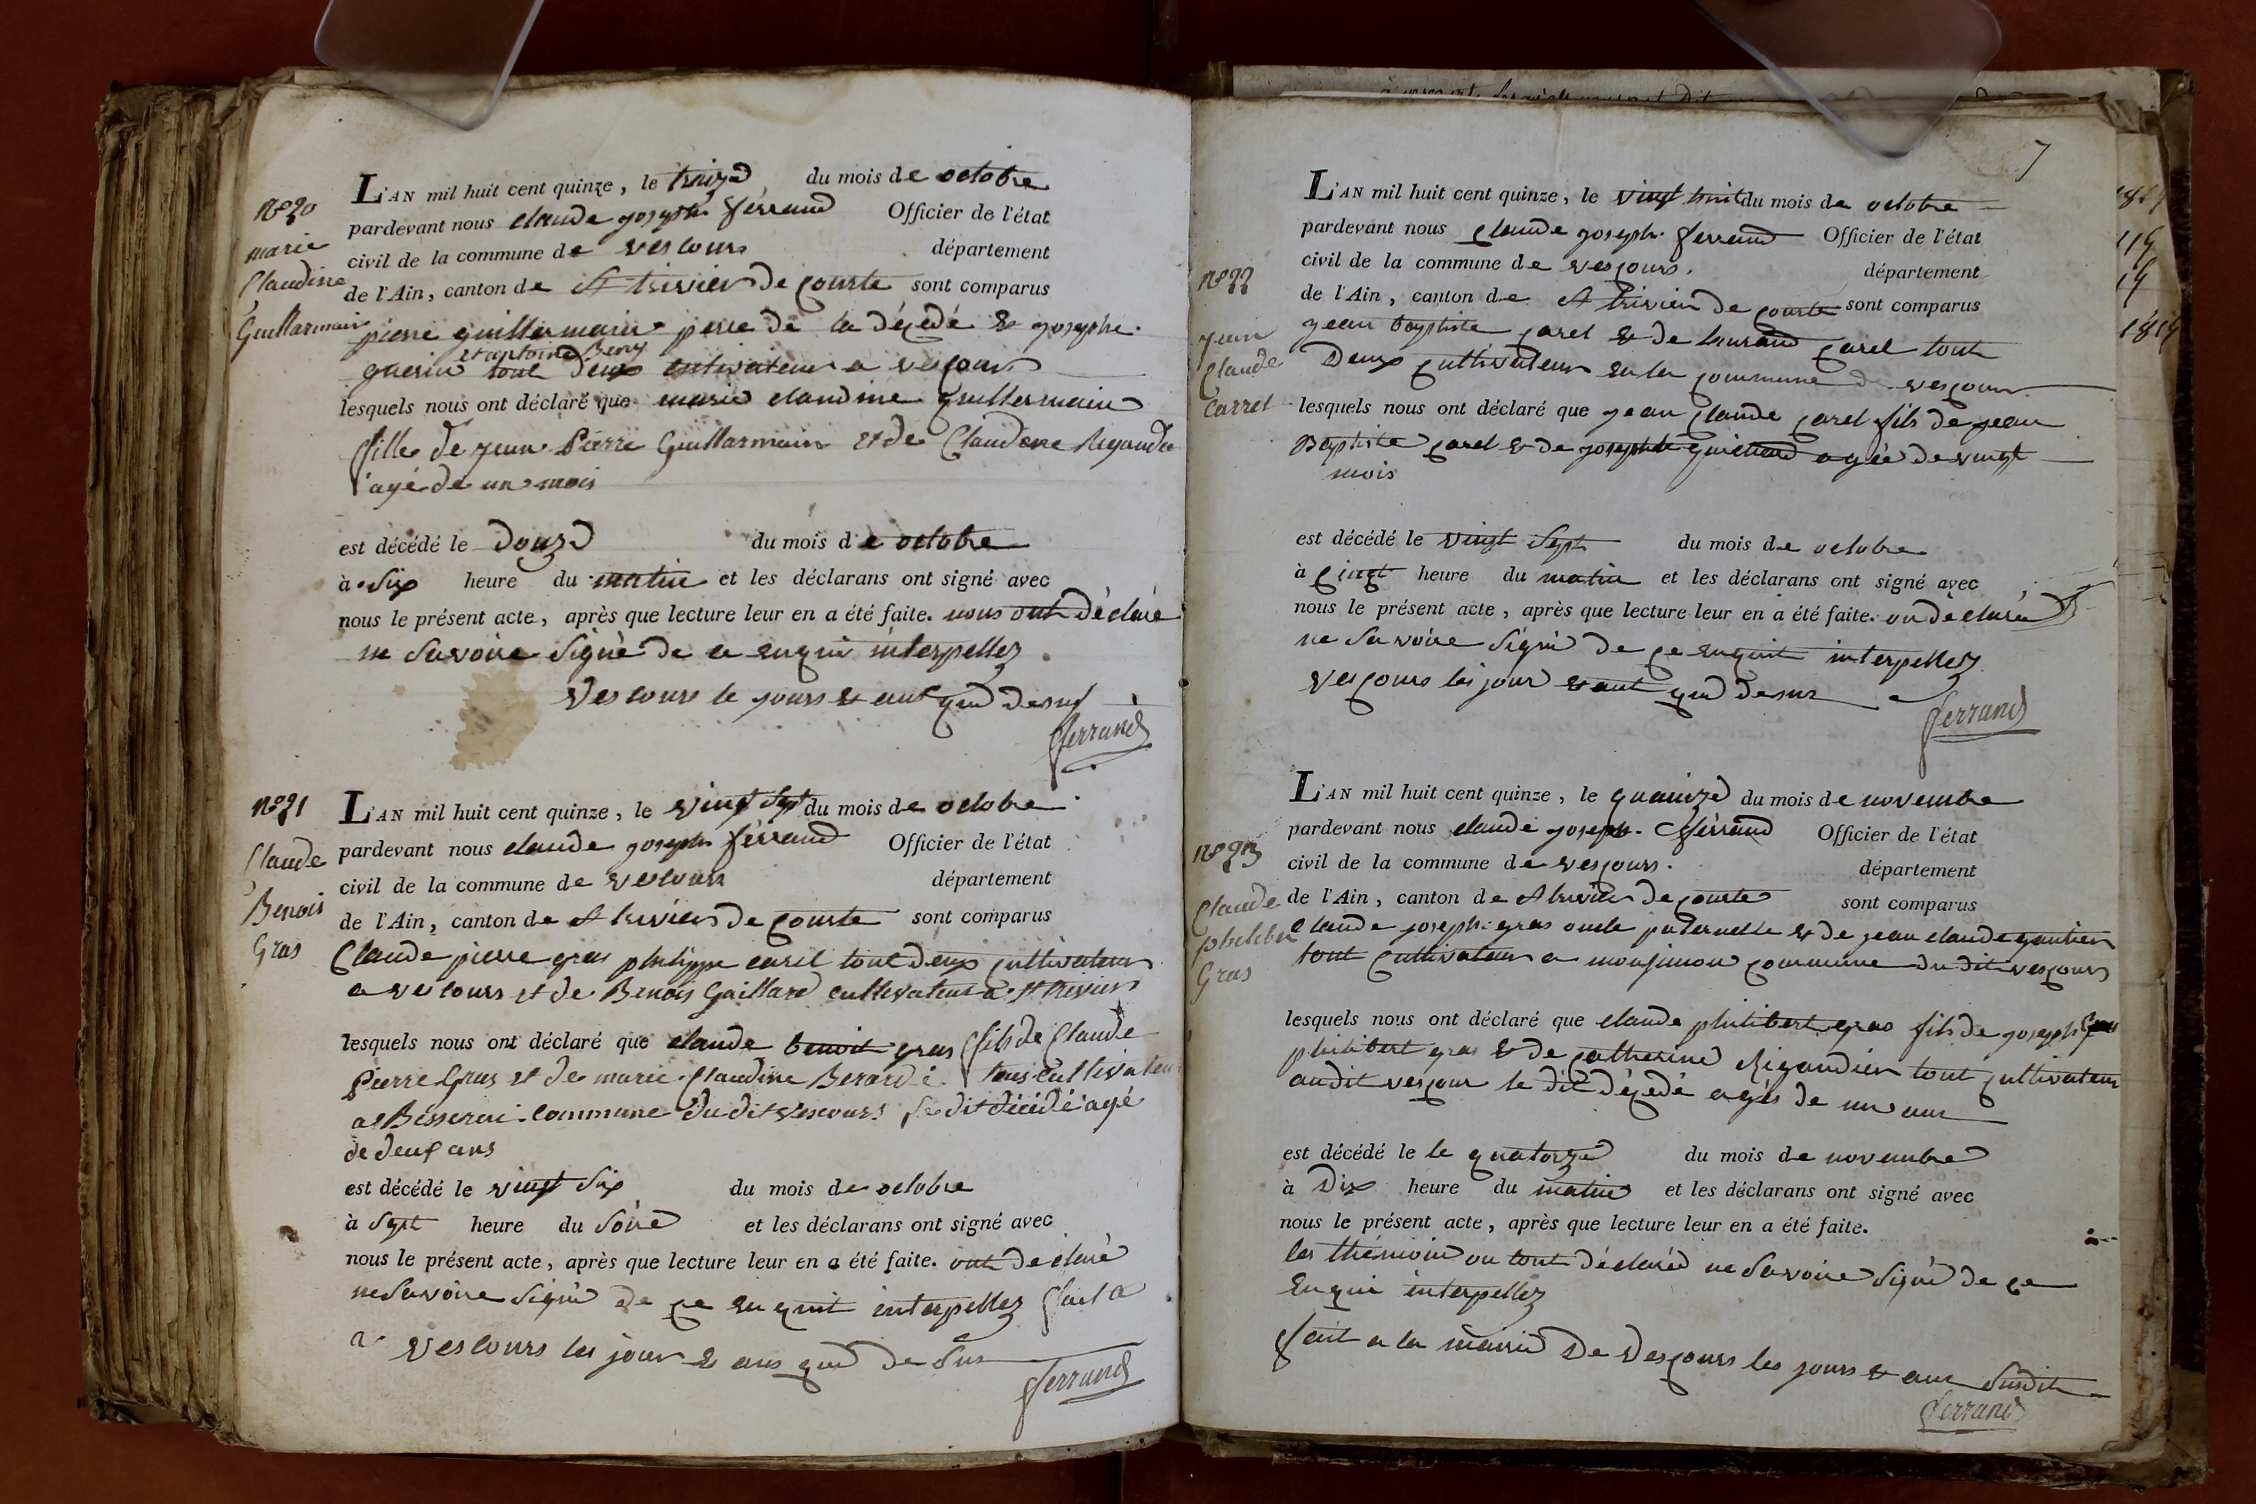 N° 20
marie
Claudine
Guillarmain
L'AN mil huit cent quinze, le treize du mois de octobre
pardevant nous claude joseph ferrand Officier de l'état
civil de la commune de vescours département
de l'Ain, canton de St trivier de courte sont comparus
pierre guillermain pere de la décedé & josephe
et antoine Beny
guerin tout deux cultivateur a vescours
lesquels nous ont déclaré que marie claudine guillermain
fille de jean Pierre Guillarmain et de Claudine Rigaudie
agé de un mois
est décédé le douze du mois de octobre
à six heure du matin et les déclarans ont signé avec
nous le présent acte, après que lecture leur en a été faite. nous ont déclaré
ne savoire signé de ce enquis interpellez
Vescours le jours & ant que desus
ferrand
N° 21
Claude
Benois
Gras
L'AN mil huit cent quinze, le vingt sept du mois de octobre
pardevant nous claude joseph ferrand Officier de l'état
civil de la commune de vescours département
de l'Ain, canton de St trivier de courte sont comparus
Claude pierre gras philippe carel tout deux cultivateur
a vescours et de Benois Gaillard cultivateur a St trivier
lesquels nous ont déclaré que claude benoit gras fils de Claude
Pierre Gras et de marie Claudine Berard tous cultivateur
a Besserai commune du dit vescours le dit décédé agé
de deux ans
est décédé le vingt six du mois de octobre
à sept heure du soire et les déclarans ont signé avec
nous le présent acte, après que lecture leur en a été faite. ont déclaré
ne savoire signé de ce enquit interpellez fait a
a vescours les jour & ans que de sus
ferrand
7
N° 22
jean
Claude
Carrel
L'AN mil huit cent quinze, le vingt huit du mois de octobre
pardevant nous claude joseph ferrand Officier de l'état
civil de la commune de vescours. département
de l'Ain, canton de St trivier de courte sont comparus
jean baptiste carel & de laurand carel tout
deux cultivateur en la commune de vescour
lesquels nous ont déclaré que jean claude carel fils de jean
Baptiste carel & de josephte guittaud agée de vingt
mois
est décédé le vingt sept du mois de octobre
à cinqt heure du matin et les déclarans ont signé avec
nous le présent acte, après que lecture leur en a été faite. on déclaré
ne savoire signé de ce enquit interpellez
vescours les jour & ant que desus
ferrand
N° 23
Claude
philibe
Gras
L'AN mil huit cent quinze, le quainze du mois de novembre
pardevant nous claude joseph ferrand Officier de l'état
civil de la commune de vescours. département
de l'Ain, canton de St trivier de courte sont comparus
claude joseph gras oncle paternelle & de jean claude gautier
tout cultivateur a monsimon commune du dit vescours
lesquels nous ont déclaré que claude philibert gras fils de joseph gras
philibert gras & de catherine Rigaudier tout cultivateur
audit vescour le dit décedé agés de un ans
est décédé le le quatorze du mois de novembre
à Dix heure du matin et les déclarans ont signé avec
nous le présent acte, après que lecture leur en a été faite.
les thémoin on tout déclaré ne savoire signé de ce
enqui interpellez
fait a la mairie De Vescours les jours & ans susdit
ferrand